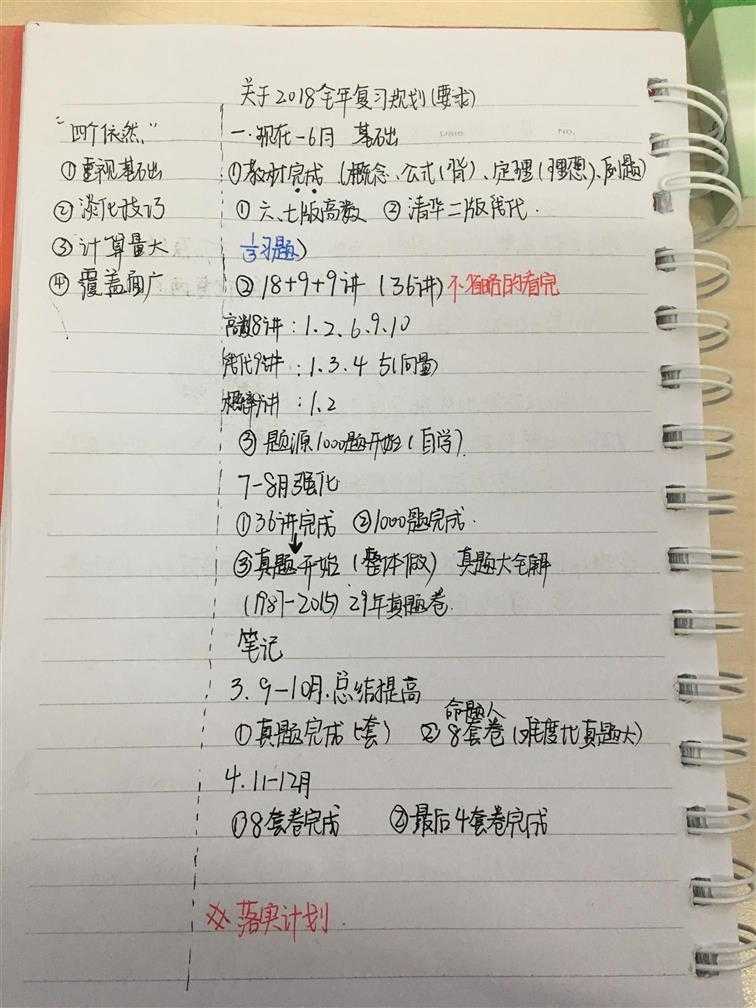 关于2018全年复习规划(要求)
"四个依然"
①重视基础
②淡化技巧
③计算量大
④覆盖面广
一.现在-6月 基础
NO.
①教材完成(概念、公式(背)、定理(理想)、例题)
①六、七版高数 ②清华二版线代.
1/3习题)
②18+9+9讲(36讲)不省略的看完
高数18讲:1.2.6.9.10
线代9讲:1.3.4 5(向量)
概率9讲:1.2
③题源1000题开始(自学)
7-8月强化
①36讲完成 ②1000题完成.
③真题开始(整体做) 真题大全解
(1987-2015)29年真题卷.
笔记
3.9-10月.总结提高
命题人
①真题完成(套) ②8套卷(难度比真题大)
4.11-12月
①8套卷完成 ②最后4套卷完成
※落实计划.